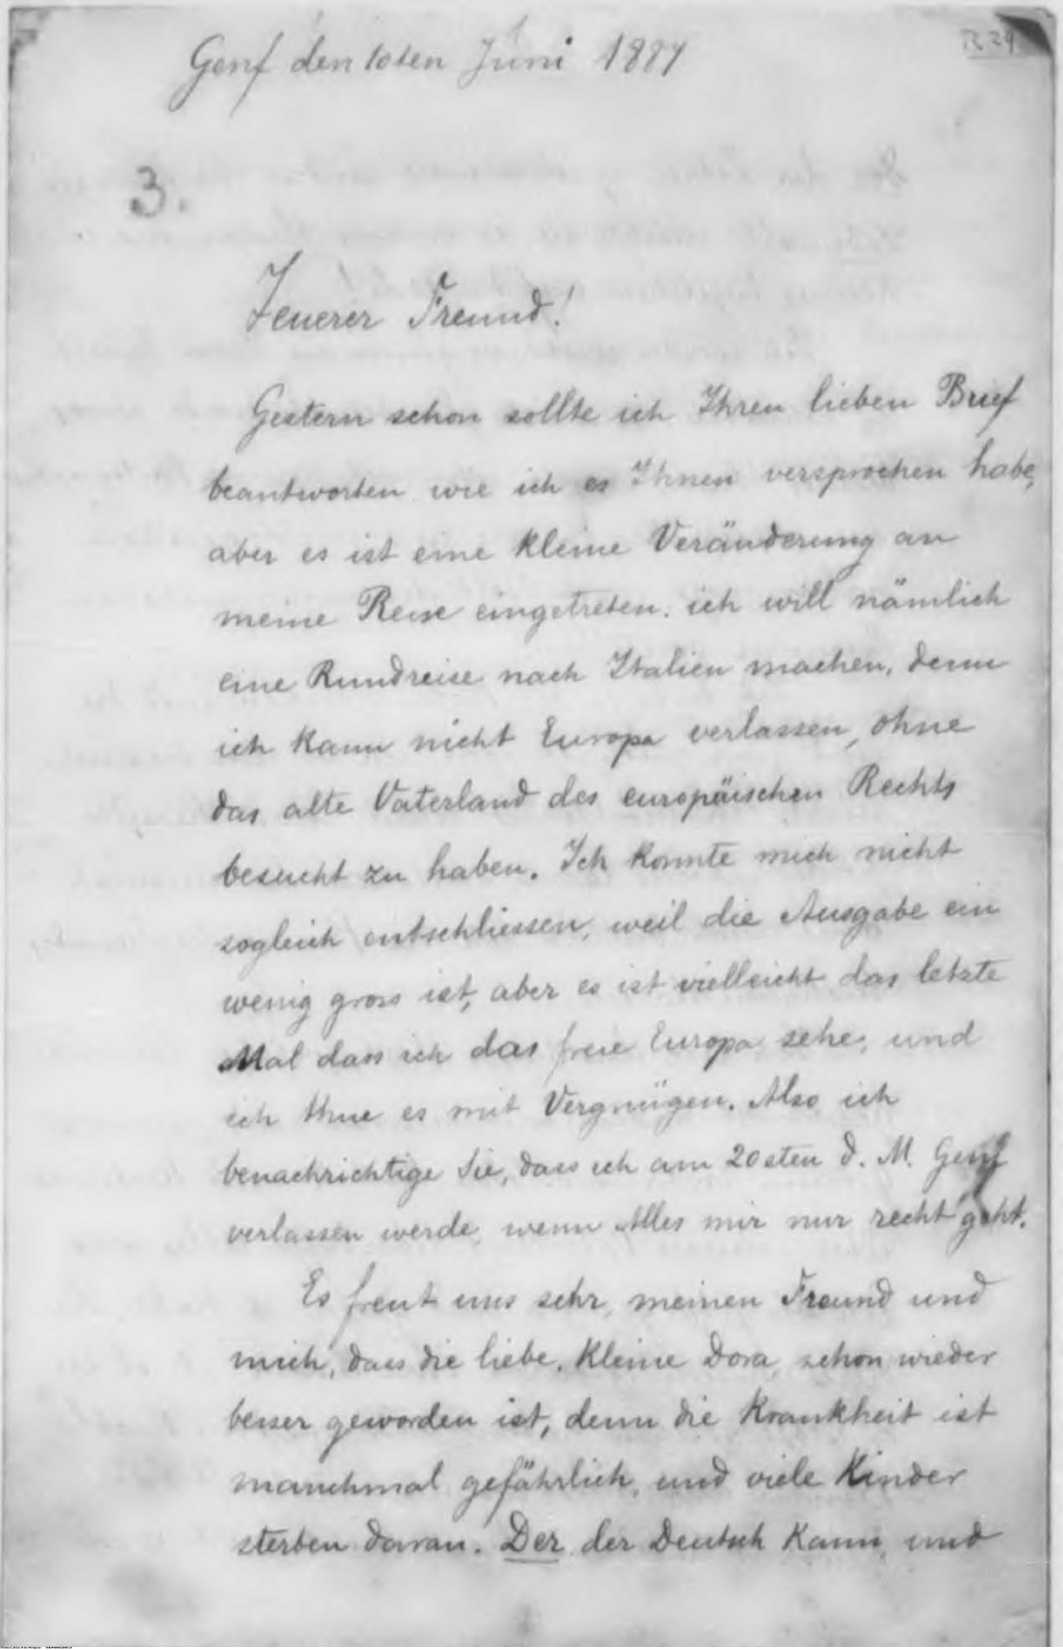 R 29
Genf den 10ten Juni 1887
3.
Teuerer Freund!
Gestern schon sollte ich Ihren lieben Brief
beantworten wie ich es Ihnen versprochen habe,
aber es ist eine kleine Veränderung an
meine Reise eingetreten: ich will nämlich
eine Rundreise nach Italien machen, denn
ich kann nicht Europa verlassen, ohne
das alte Vaterland des europäischen Rechts
besucht zu haben. Ich konnte mich nicht
sogleich entschliessen, weil die Ausgabe ein
wenig gross ist, aber es ist vielleicht das letzte
Mal dass ich das freie Europa sehe, und
ich thue es mit Vergnügen. Also ich
benachrichtige Sie, dass ich am 20sten d. M. Genf
verlassen werde, wenn Alles mir nur recht geht.
Es freut uns sehr, meinen Freund und
mich, dass die liebe, kleine Dora, schon wieder
besser geworden ist, denn die Krankheit ist
manchmal gefährlich, und viele Kinder
sterben daran. Der, der Deutsch kann, und